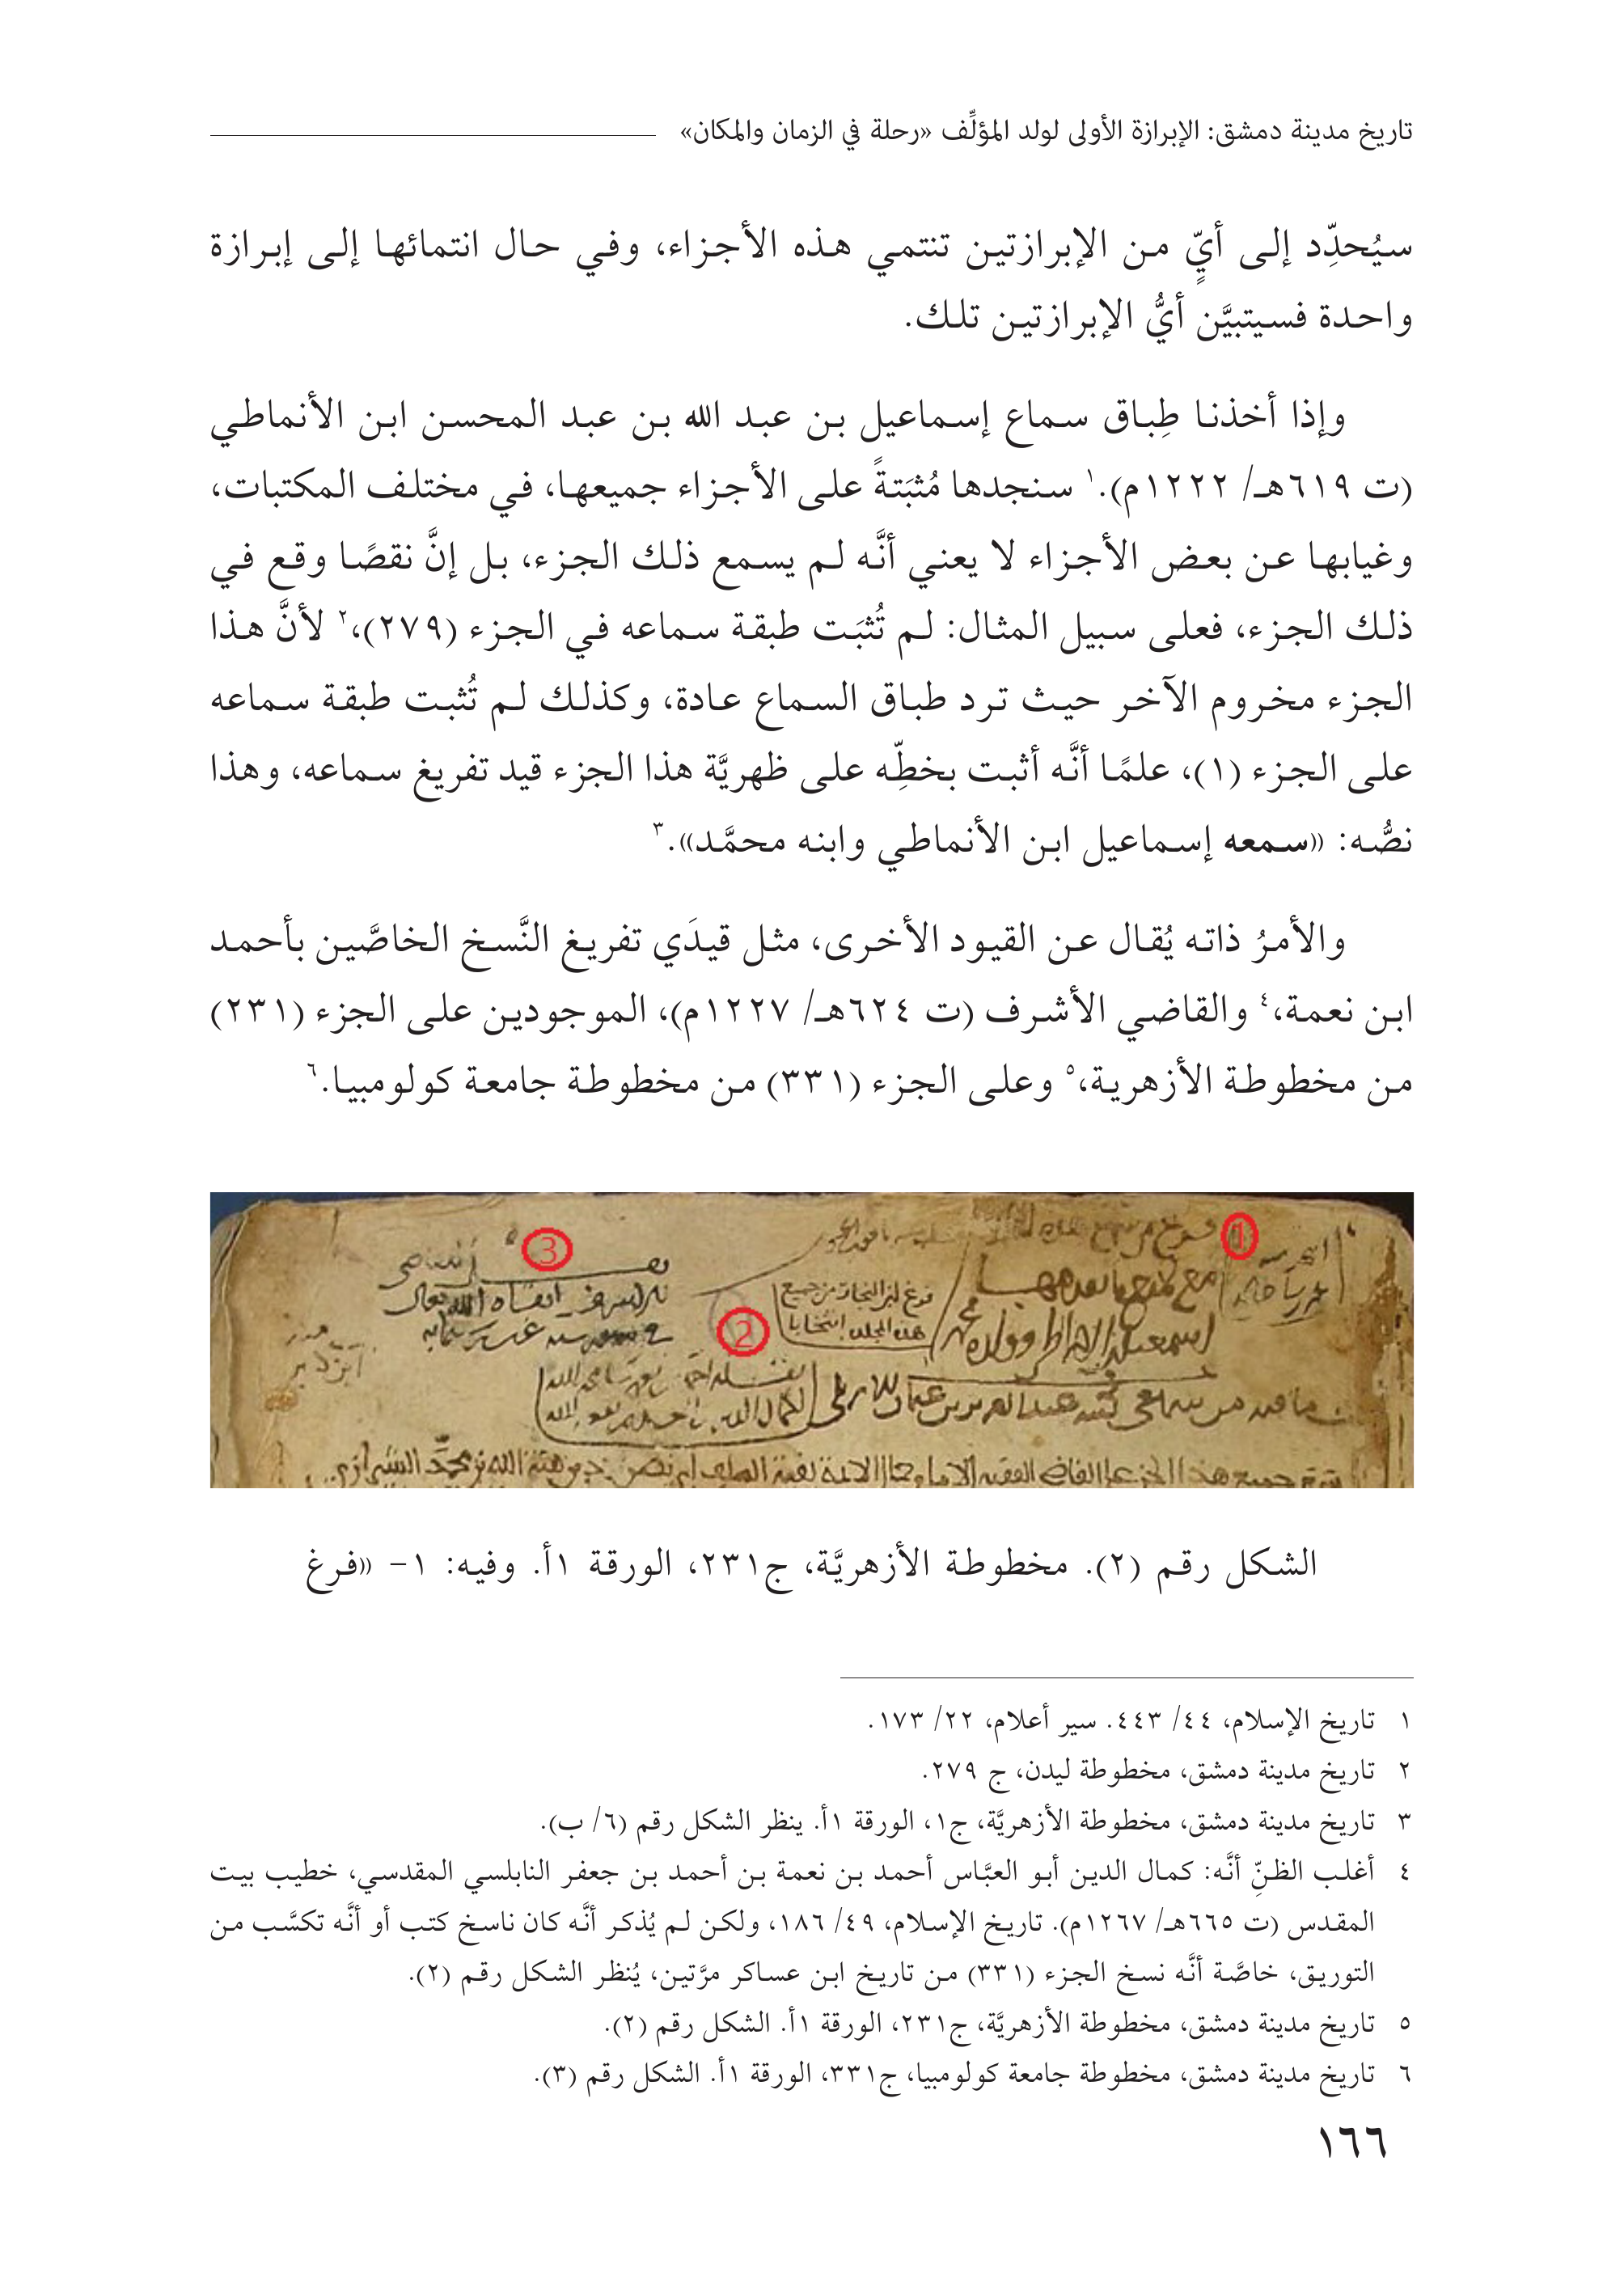 تاريخ مدينة دمشق: الإبرازة الأولى لولد المؤلِّف «رحلة في الزمان والمكان»
سيُحدِّد إلى أيٍّ من الإبرازتين تنتمي هذه الأجزاء، وفي حال انتمائها إلى إبرازة
واحدة فسيتبيَّن أيُّ الإبرازتين تلك.
وإذا أخذنا طِباق سماع إسماعيل بن عبد الله بن عبد المحسن ابن الأنماطي
(ت ٦١٩هـ/ ١٢٢٢م).١ سنجدها مُثبَتةً على الأجزاء جميعها، في مختلف المكتبات،
وغيابها عن بعض الأجزاء لا يعني أنَّه لم يسمع ذلك الجزء، بل إنَّ نقصًا وقع في
ذلك الجزء، فعلى سبيل المثال: لم تُثبَت طبقة سماعه في الجزء (٢٧٩)،٢ لأنَّ هذا
الجزء مخروم الآخر حيث ترد طباق السماع عادة، وكذلك لم تُثبت طبقة سماعه
على الجزء (١)، علمًا أنَّه أثبت بخطِّه على ظهريَّة هذا الجزء قيد تفريغ سماعه، وهذا
نصُّه: «سمعه إسماعيل ابن الأنماطي وابنه محمَّد».٣
والأمرُ ذاته يُقال عن القيود الأخرى، مثل قيدَي تفريغ النَّسخ الخاصَّين بأحمد
ابن نعمة،٤ والقاضي الأشرف (ت ٦٢٤هـ/ ١٢٢٧م)، الموجودين على الجزء (٢٣١)
من مخطوطة الأزهرية،٥ وعلى الجزء (٣٣١) من مخطوطة جامعة كولومبيا.٦
1
3
فرغ ابن النجار من جميع
2
هذا المجلد انتخابا
الشكل رقم (٢). مخطوطة الأزهريَّة، ج٢٣١، الورقة ١أ. وفيه: ١- «فرغ
١ تاريخ الإسلام، ٤٤/ ٤٤٣. سير أعلام، ٢٢/ ١٧٣.
٢ تاريخ مدينة دمشق، مخطوطة ليدن، ج ٢٧٩.
٣ تاريخ مدينة دمشق، مخطوطة الأزهريَّة، ج١، الورقة ١أ. ينظر الشكل رقم (٦/ ب).
٤ أغلب الظنِّ أنَّه: كمال الدين أبو العبَّاس أحمد بن نعمة بن أحمد بن جعفر النابلسي المقدسي، خطيب بيت
المقدس (ت ٦٦٥هـ/ ١٢٦٧م). تاريخ الإسلام، ٤٩/ ١٨٦، ولكن لم يُذكر أنَّه كان ناسخ كتب أو أنَّه تكسَّب من
التوريق، خاصَّة أنَّه نسخ الجزء (٣٣١) من تاريخ ابن عساكر مرَّتين، يُنظر الشكل رقم (٢).
٥ تاريخ مدينة دمشق، مخطوطة الأزهريَّة، ج٢٣١، الورقة ١أ. الشكل رقم (٢).
٦ تاريخ مدينة دمشق، مخطوطة جامعة كولومبيا، ج٣٣١، الورقة ١أ. الشكل رقم (٣).
١٦٦